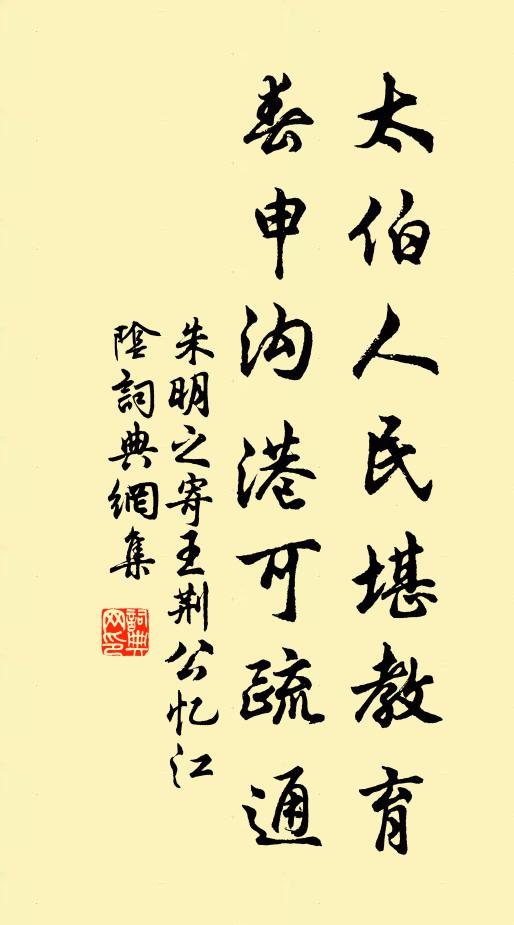 太伯人民堪教育
春申沟港可疏通
朱明之寄王荆公忆江
陰詞典網集
詞典網印